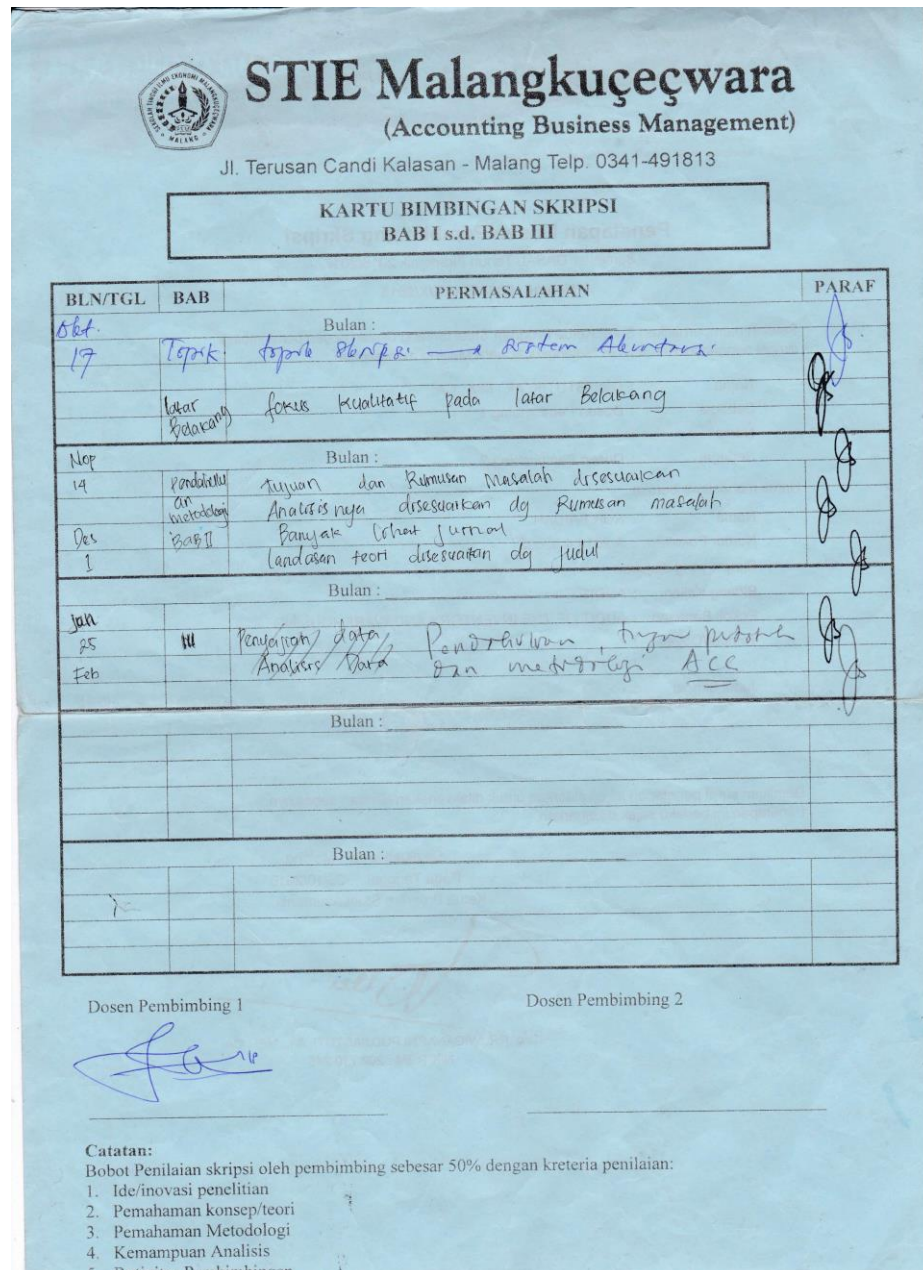 STIE Malangkuçeçwara
(Accounting Business Management)
Jl. Terusan Candi Kalasan - Malang Telp. 0341-491813
KARTU BIMBINGAN SKRIPSI
BAB I s.d. BAB III
BLN/TGL BAB PERMASALAHAN PARAF
Okt. Bulan :
17 Topik topik skripsi → Sistem Akuntansi
latar Belakang fokus kualitatif pada latar Belakang
Nop Bulan :
14 Pendahulu tujuan dan Rumusan Masalah disesuaikan
an metodologi Analisis nya disesuaikan dg Rumusan masalah
Des BaB II Banyak lihat jurnal
1 landasan teori disesuaikan dg judul
Bulan :
Jan
25 III Penyajian data Pendahuluan, tujuan
Feb Analisis Data dan metodologi ACC
Bulan :
Bulan :
Dosen Pembimbing 1 Dosen Pembimbing 2
Catatan:
Bobot Penilaian skripsi oleh pembimbing sebesar 50% dengan kreteria penilaian:
1. Ide/inovasi penelitian
2. Pemahaman konsep/teori
3. Pemahaman Metodologi
4. Kemampuan Analisis